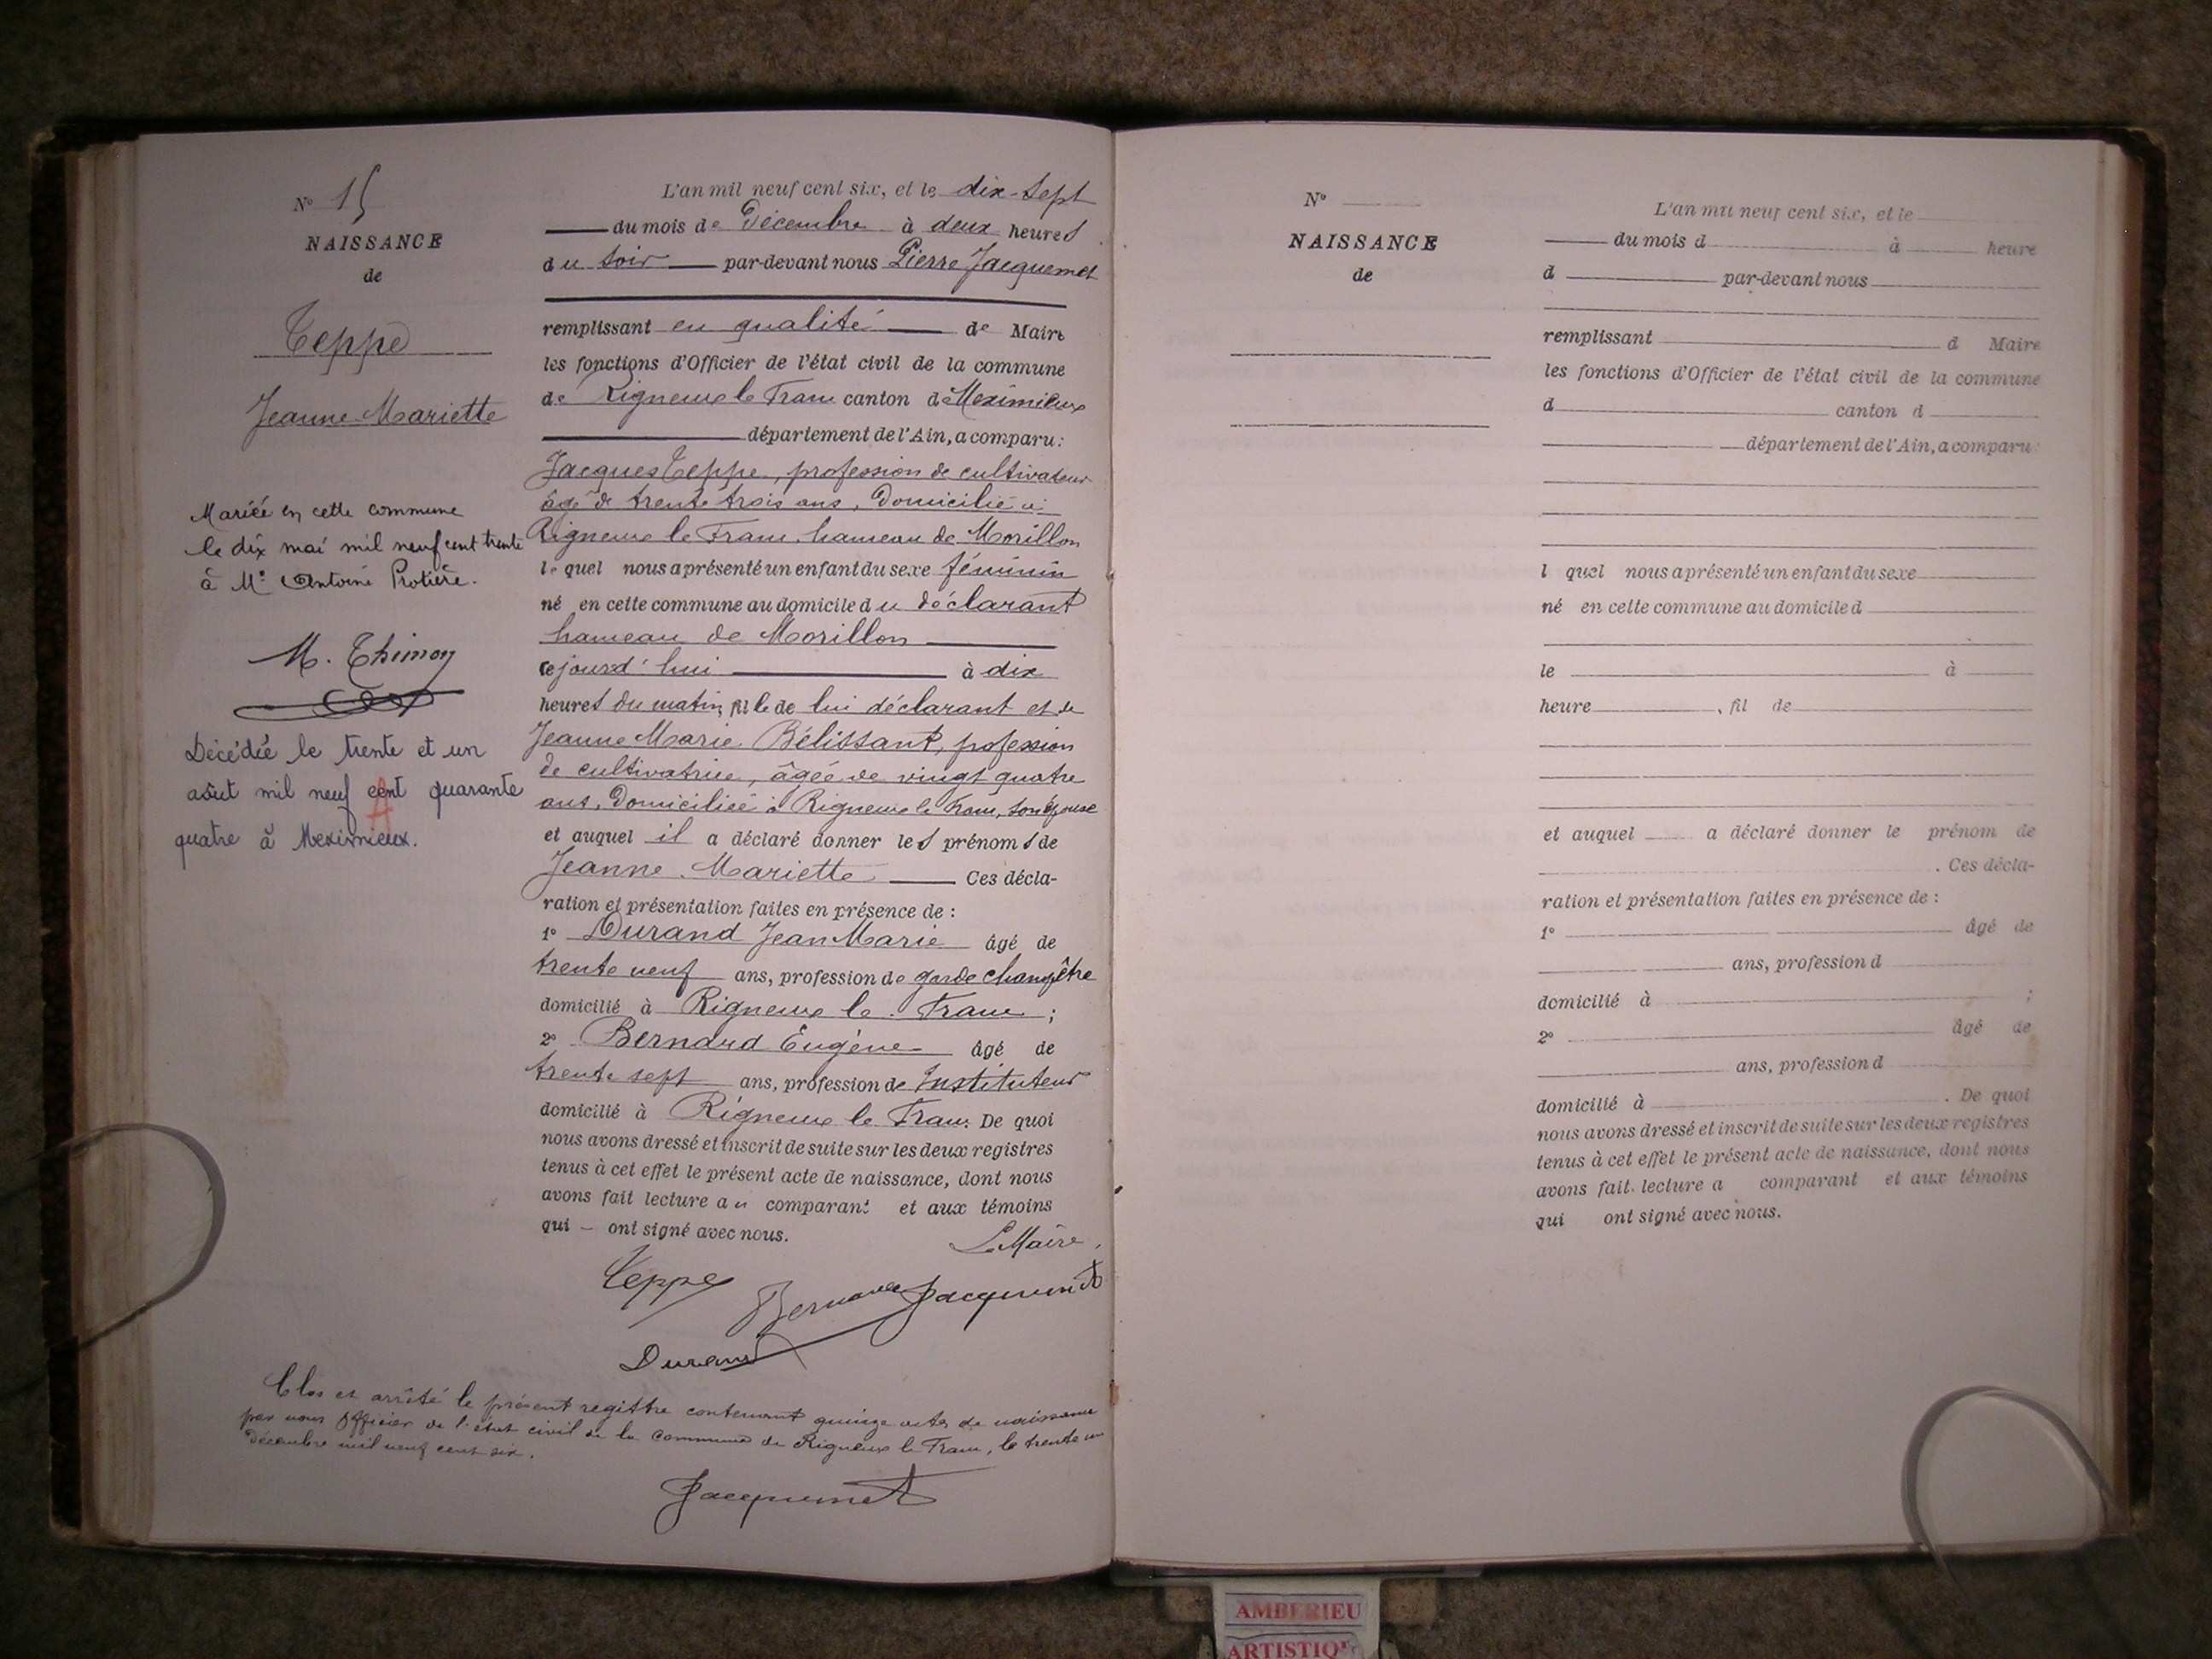 N° 15
NAISSANCE
de
Teppe
Jeanne Mariette
Mariée en cette commune
le dix mai mil neuf cent trente
à Mr Antoine Protière.
M. Thimon
Décédée le trente et un
août mil neuf cent quarante
quatre à Meximieux.
L'an mil neuf cent six, et le dix-sept
du mois de Décembre à deux heures
du soir par-devant nous Pierre Jacquemet
remplissant en qualité de Maire
les fonctions d'Officier de l'état civil de la commune
de Rigneux le Franc canton de Meximieux
département de l'Ain, a comparu :
Jacques Teppe, profession de cultivateur
âgé de trente trois ans, domicilié à
Rigneux le Franc, hameau de Morillon
lequel nous a présenté un enfant du sexe féminin
né en cette commune au domicile du déclarant
hameau de Morillon
cejourd'hui à dix
heures du matin, fille de lui déclarant et de
Jeanne Marie Bélissant, profession
de cultivatrice, âgée de vingt quatre
ans, domiciliée à Rigneux le Franc, son épouse
et auquel il a déclaré donner les prénoms de
Jeanne Mariette Ces décla-
ration et présentation faites en présence de :
1° Durand Jean Marie âgé de
trente neuf ans, profession de garde champêtre
domicilié à Rigneux le Franc ;
2° Bernard Eugène âgé de
trente sept ans, profession de Instituteur
domicilié à Rigneux le Franc. De quoi
nous avons dressé et inscrit de suite sur les deux registres
tenus à cet effet le présent acte de naissance, dont nous
avons fait lecture au comparant et aux témoins
qui – ont signé avec nous.
Le Maire,
Teppe Bernard Jacquemet
Durand
Clos et arrêté le présent registre contenant quinze actes de naissance
par nous Officier de l'état civil de la commune de Rigneux le Franc, le trente un
Décembre mil neuf cent six.
Jacquemet
N°
NAISSANCE
de
L'an mil neuf cent six, et le
du mois d à heure
d par-devant nous
remplissant d Maire
les fonctions d'Officier de l'état civil de la commune
d canton d
département de l'Ain, a comparu :
l quel nous a présenté un enfant du sexe
né en cette commune au domicile d
le à
heure , fil de
et auquel a déclaré donner le prénom de
. Ces décla-
ration et présentation faites en présence de :
1° âgé de
ans, profession d
domicilié à ;
2° âgé de
ans, profession d
domicilié à . De quoi
nous avons dressé et inscrit de suite sur les deux registres
tenus à cet effet le présent acte de naissance, dont nous
avons fait lecture a comparant et aux témoins
qui ont signé avec nous.
AMBERIEU
ARTISTIQ